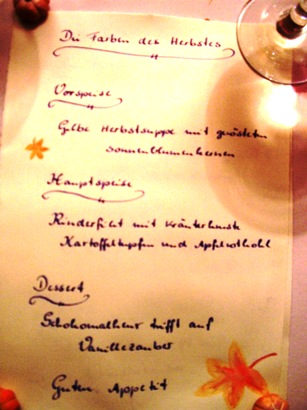 Die Farben des Herbstes
Vorspeise
Gelbe Herbstsuppe mit gerösteten
Sonnenblumenkernen
Hauptspeise
Rinderfilet mit Kräuterkruste
Kartoffelkrapfen und Apfelrotkohl
Dessert
Schokomalheur trifft auf
Vanillezauber
Guten Appetit